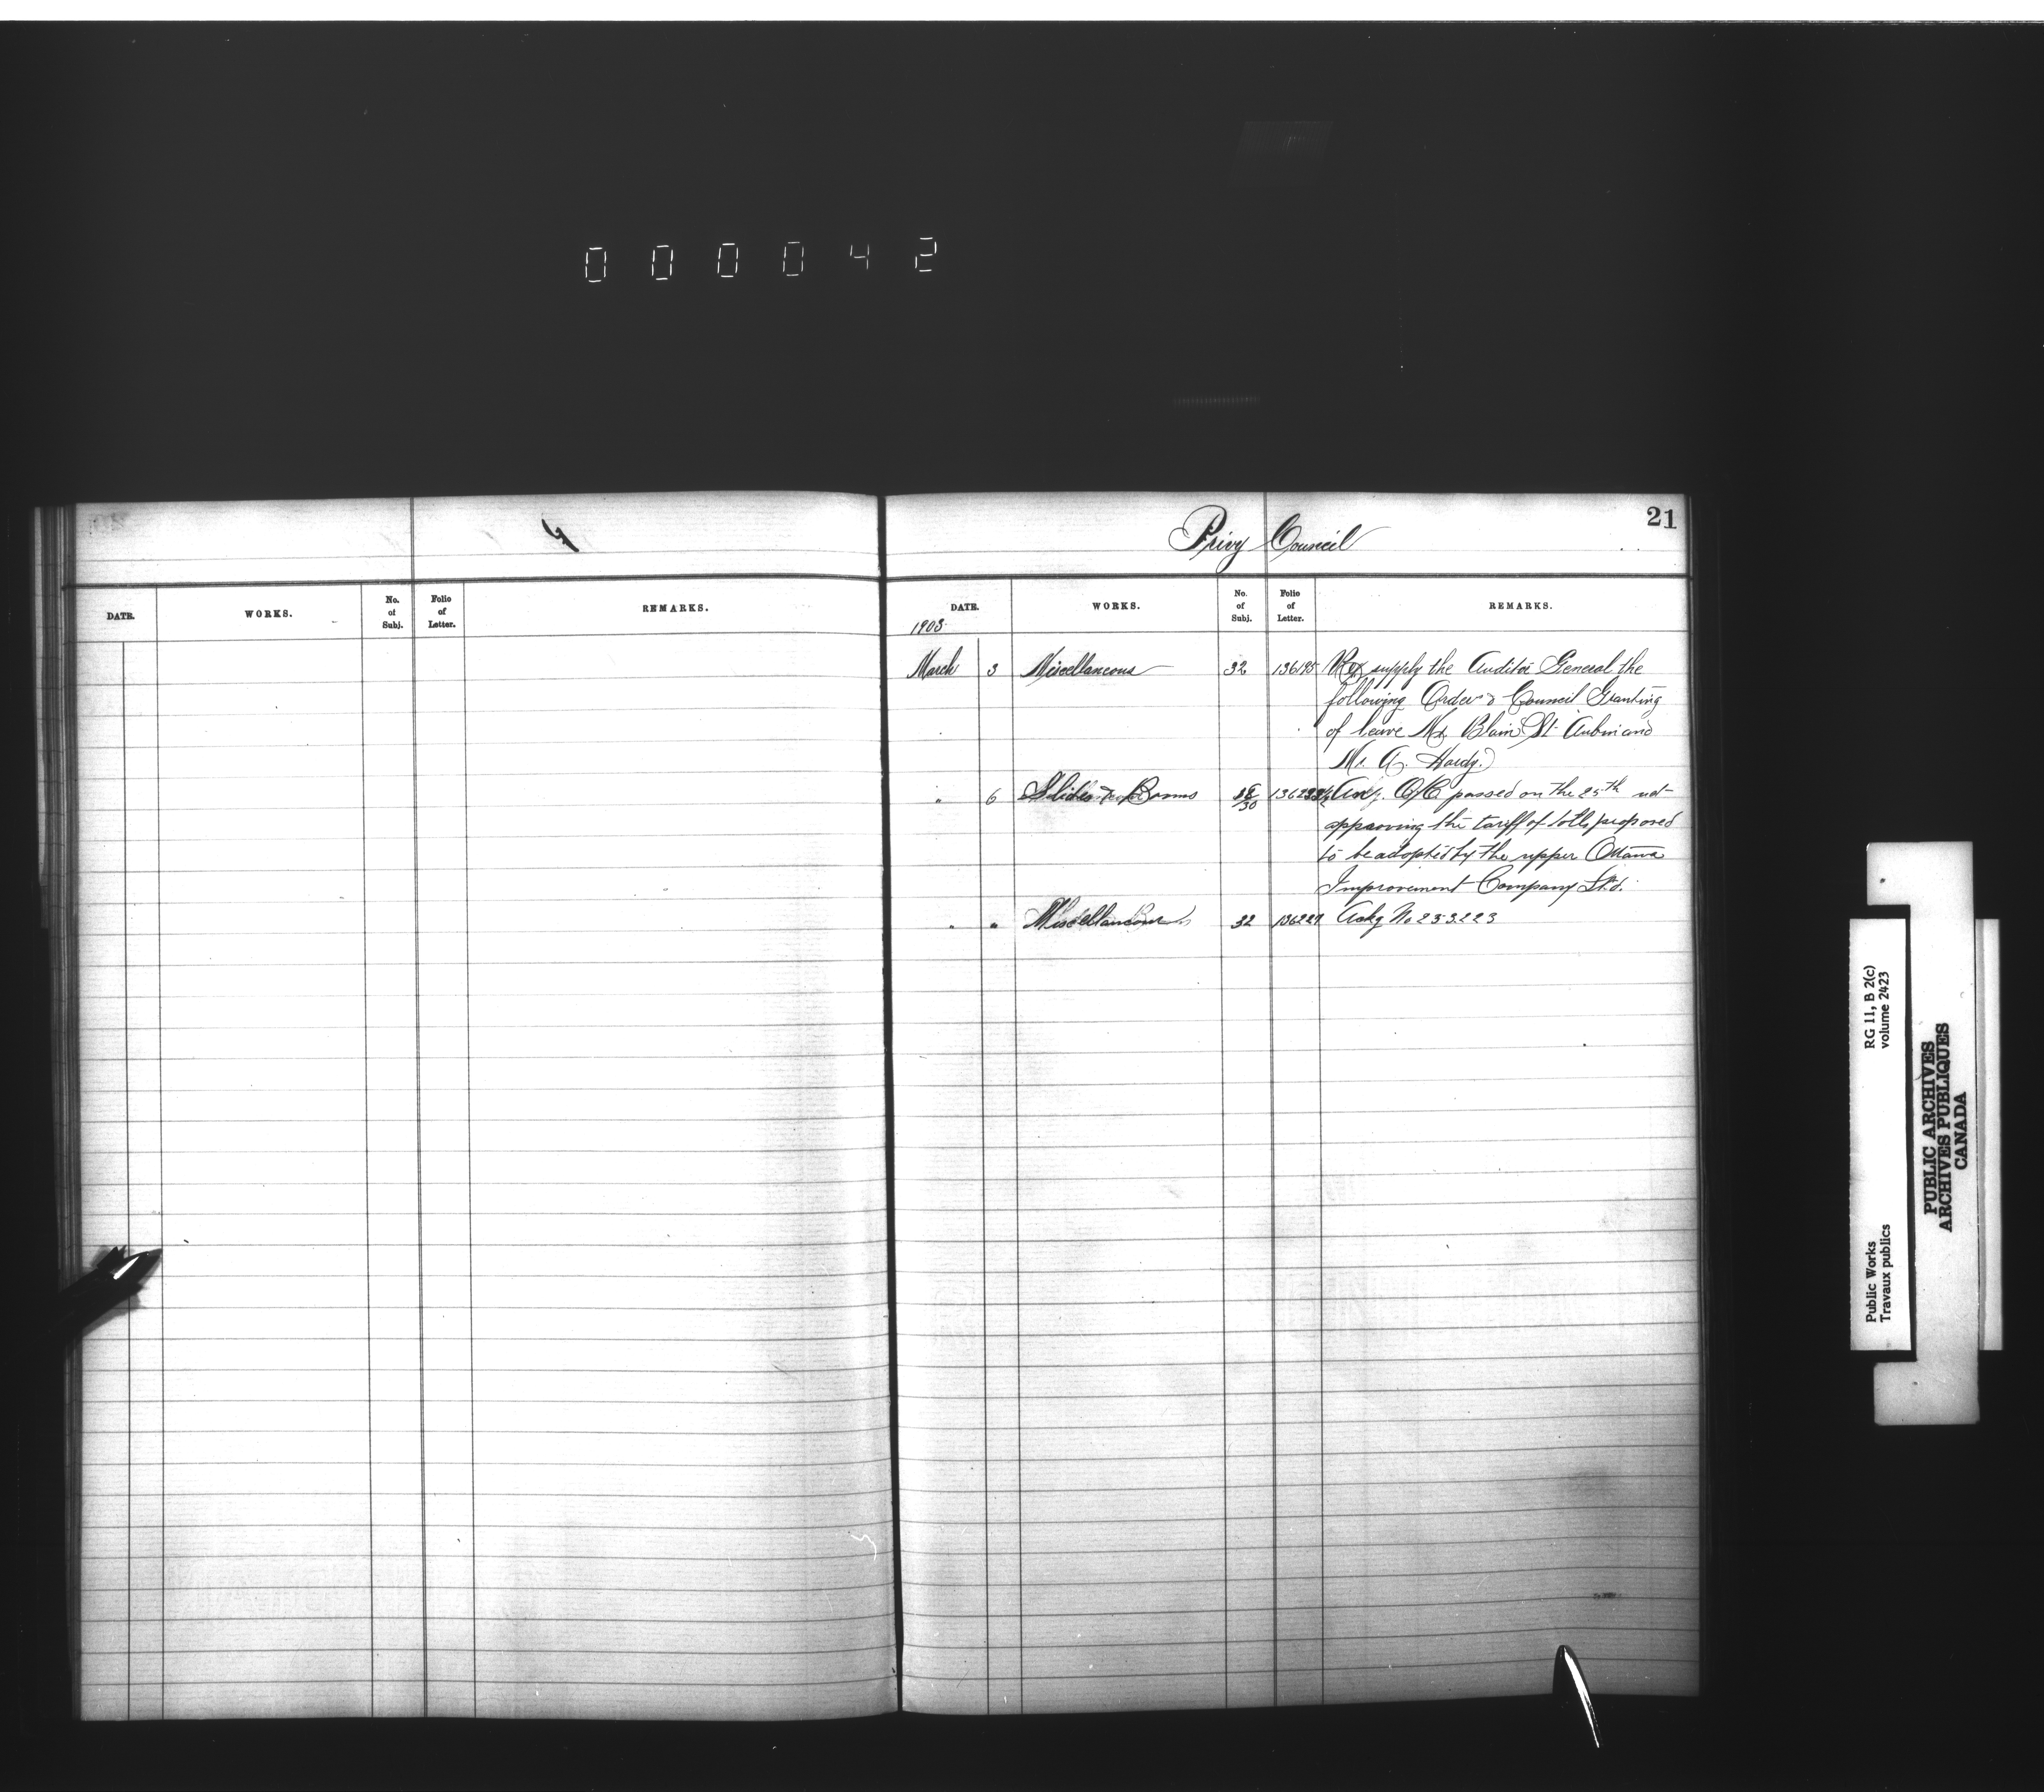 000042
21
Privy Council
DATE. WORKS. No. of Subj. Folio of Letter. REMARKS.
DATE. WORKS. No. of Subj. Folio of Letter. REMARKS.
1903
March 3 Miscellaneous 32 136195 supply the Auditor General the
following Order Council Granting
of leave Mr. Blain St. Aubin and
Mr. A. Hardy.
" 6 Slides & Booms 30 O/C passed on the 25th ult
approving the tariff of tolls proposed
to be adopted by the upper Ottawa
Improvement Company Ltd.
" " Miscellaneous 32 136227 Ackg No 233223
RG 11, B 2(c)
volume 2423
Public Works
Travaux publics
PUBLIC ARCHIVES
ARCHIVES PUBLIQUES
CANADA